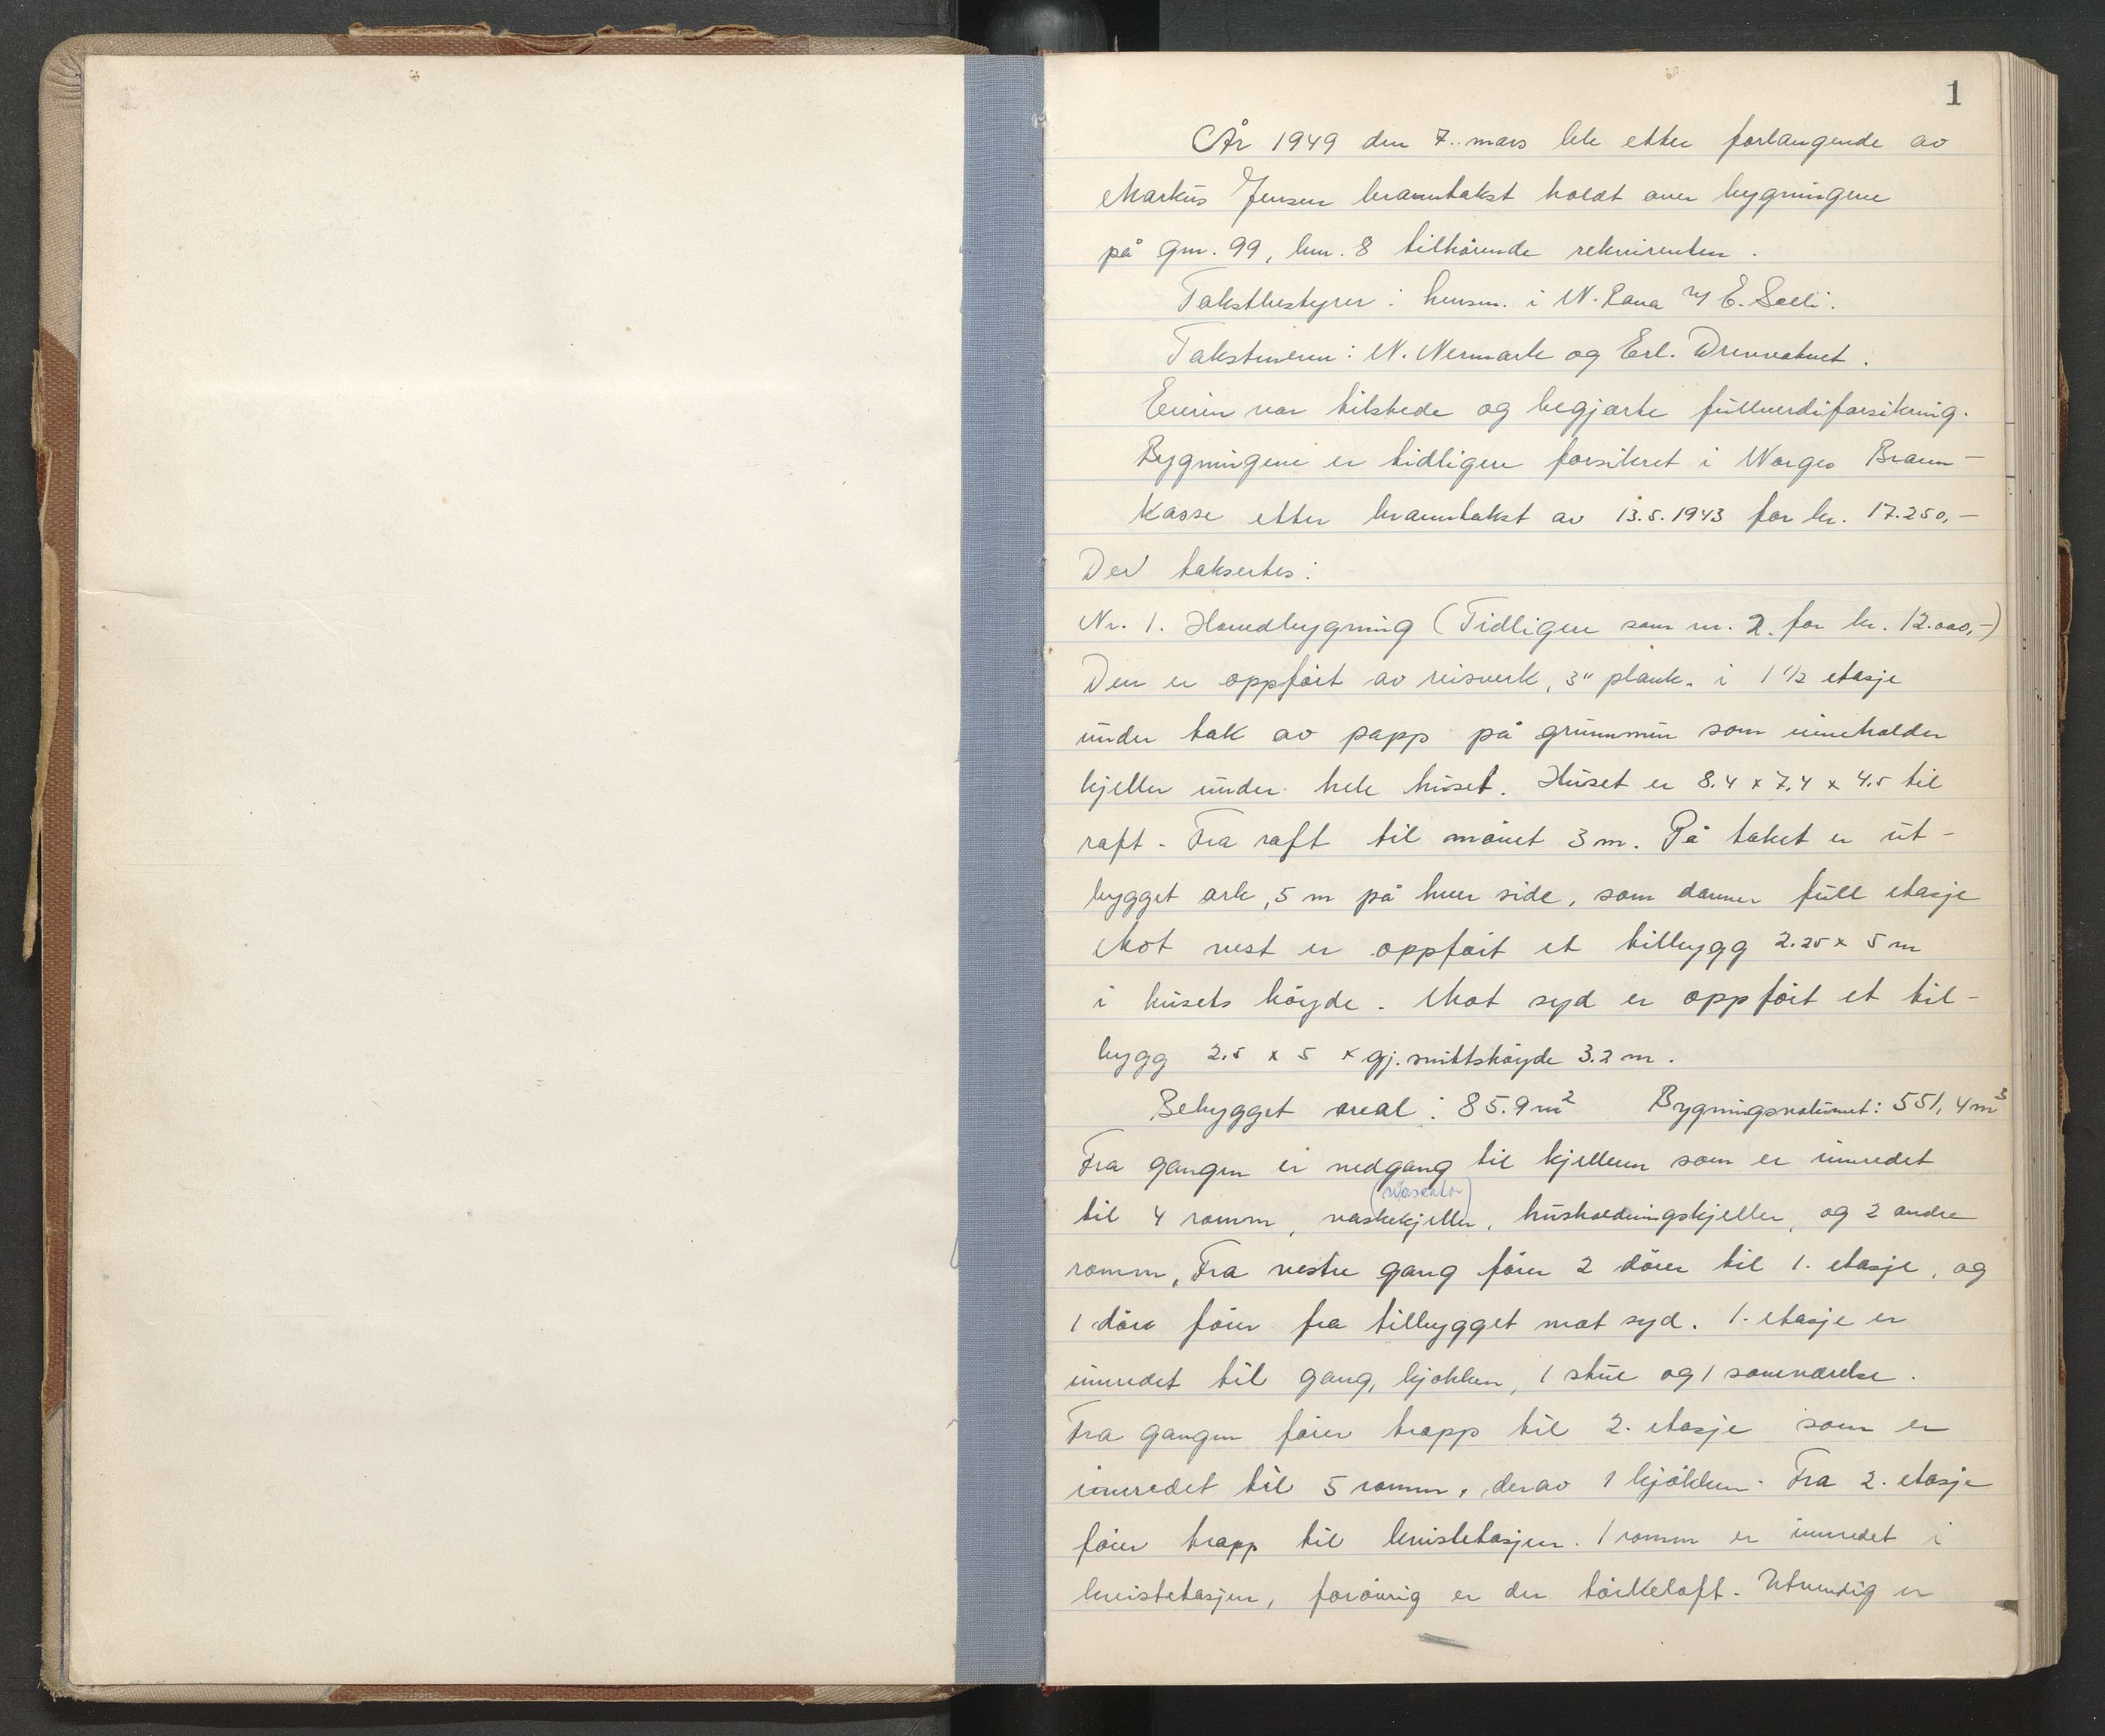 1
År 1949 den 7. mars ble etter forlangende av
Markus Jensen branntakst holdt over bygningene
på gnr. 99, bnr. 8 tilhörende rekvirenten.
Takstbestyrer: lensm. i N. Rana v/ E. Solli.
Takstmenn: N. Nermark og Erl. Drevvatnet.
Eieren var tilstede og begjærte fullverdiforsikring.
Bygningene er tidligere forsikret i Norges Brann-
kasse etter branntakst av 13.5.1943 for kr. 17.250,-
Der taksertes:
Nr. 1. Hovedbygning (Tidligere som nr. 2. for kr. 12.000,-)
Den er oppfört av reisverk, 3" plank. i 1 1/2 etasje
under tak av papp på grunnmur som inneholder
kjeller under hele huset. Huset er 8.4 x 7.4 x 4.5 til
raft. Fra raft til mönet 3 m. På taket er ut-
bygget ark, 5 m på hver side, som danner full etasje
Mot vest er oppfört et tilbygg 2.25 x 5 m
i husets höyde. Mot syd er oppfört et til-
bygg 2.5 x 5 x gj.snittshöyde 3.2 m.
Bebygget areal: 85.9 m² Bygningsvolumet: 551,4 m³
Fra gangen er nedgang til kjelleren som er innredet
til 4 romm, vaskekjeller, husholdningskjeller, og 2 andre
romm, Fra vestre gang förer 2 dörer til 1. etasje, og
1 dör förer fra tilbygget mot syd. 1. etasje er
innredet til gang, kjökken, 1 stue og 1 soveværelse.
Fra gangen förer trapp til 2. etasje som er
innredet til 5 romm, derav 1 kjökken. Fra 2. etasje
förer trapp til kvistetasjen. 1 romm er innredet i
kvistetasjen, forövrig er der törkeloft. Utvendig er